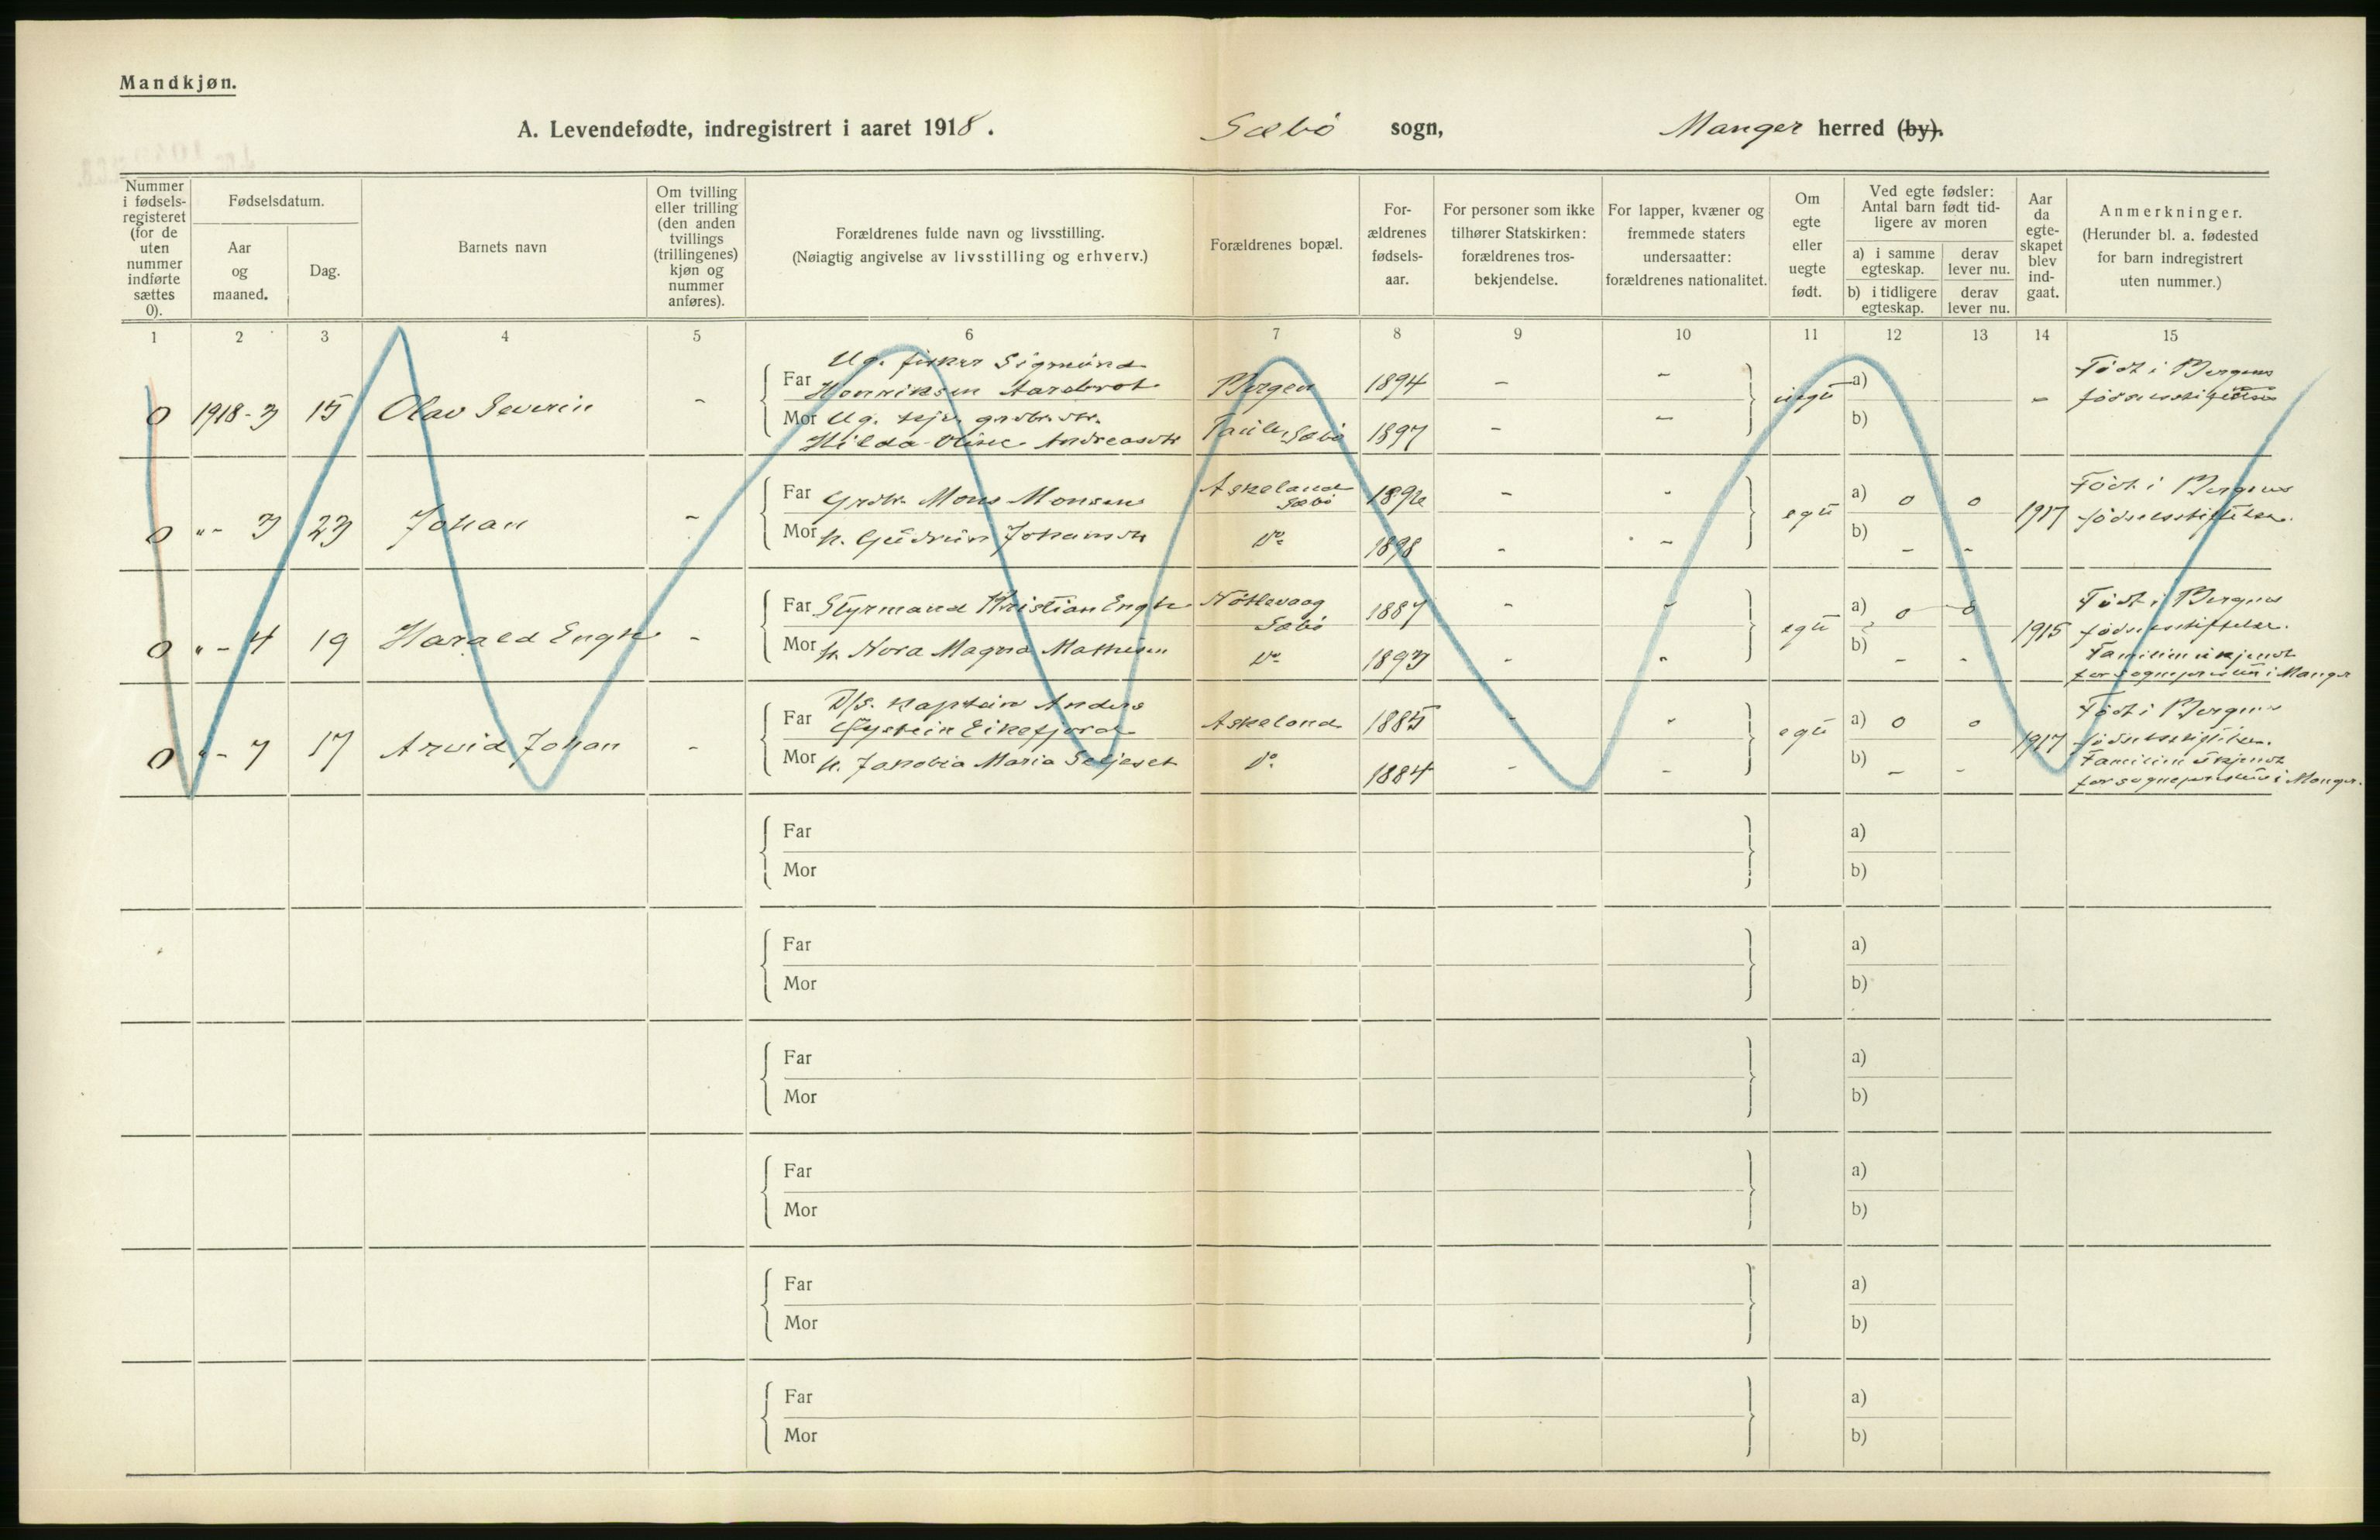 Mandkjøn.
A. Levendefødte, indregistrert i aaret 1918. Sæbö sogn, Manger herred (by).
Nummer i fødsels-registeret (for de uten nummer indførte sættes 0).
Fødselsdatum.
Aar og maaned.
Dag.
Barnets navn
Om tvilling eller trilling (den anden tvillings (trillingenes) kjøn og nummer anføres).
Forældrenes fulde navn og livsstilling.
(Nøiagtig angivelse av livsstilling og erhverv.)
Forældrenes bopæl.
For-ældrenes fødsels-aar.
For personer som ikke tilhører Statskirken: forældrenes tros-bekjendelse.
For lapper, kvæner og fremmede staters undersaatter: forældrenes nationalitet.
Om egte eller uegte født.
Ved egte fødsler: Antal barn født tid-ligere av moren
a) i samme egteskap.
derav lever nu.
b) i tidligere egteskap.
derav lever nu.
Aar da egte-skapet blev ind-gaat.
Anmerkninger.
(Herunder bl. a. fødested for barn indregistrert uten nummer.)
1 2 3 4 5 6 7 8 9 10 11 12 13 14 15
0 1918-3 15 Olav Severin -
Far Ug. fisker Sigmund
Henriksen Bergen 1894 - -
Mor Ug.
Hilda Oline Andreasdtr Sæbö 1897 - -
uegte a) b) -
Født i Bergens
fødselsstiftelse
0 "- 3 23 Johan -
Far Grdbr. Mons Monsen Askeland
Sæbö 1892 - -
Mor h. Gudrun Johansdtr Do 1898 - -
egte a) 0 0 b) - - 1917
Født i Bergens
fødselsstiftelse.
0 "- 4 19 Harald Engh -
Far Styrmand Kristian Engh
Sæbö 1887 - -
Mor h. Nora Magna Mathisen Do 1893 - -
egte a) 0 0 b) - - 1915
Født i Bergens
fødselsstiftelse.
Familien ukjendt
for sognepresten i Manger
0 "- 7 17 Arvid Johan -
Far D/S. kaptein Anders
Øystein Eikefjord Askeland 1885 - -
Mor h. Jakobia Maria Seljeset Do 1884 - -
egte a) 0 0 b) - - 1917
Født i Bergens
fødselsstiftelse.
Familien ukjendt
for sognepresten i Manger.
Far a)
Mor b)
Far a)
Mor b)
Far a)
Mor b)
Far a)
Mor b)
Far a)
Mor b)
Far a)
Mor b)